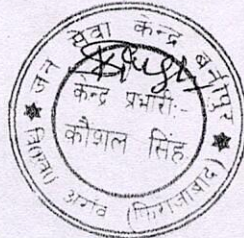 जन सेवा केन्द्र बनीपुर
केन्द्र प्रभारी:-
कौशल सिंह
अरांव (फिरोजाबाद)